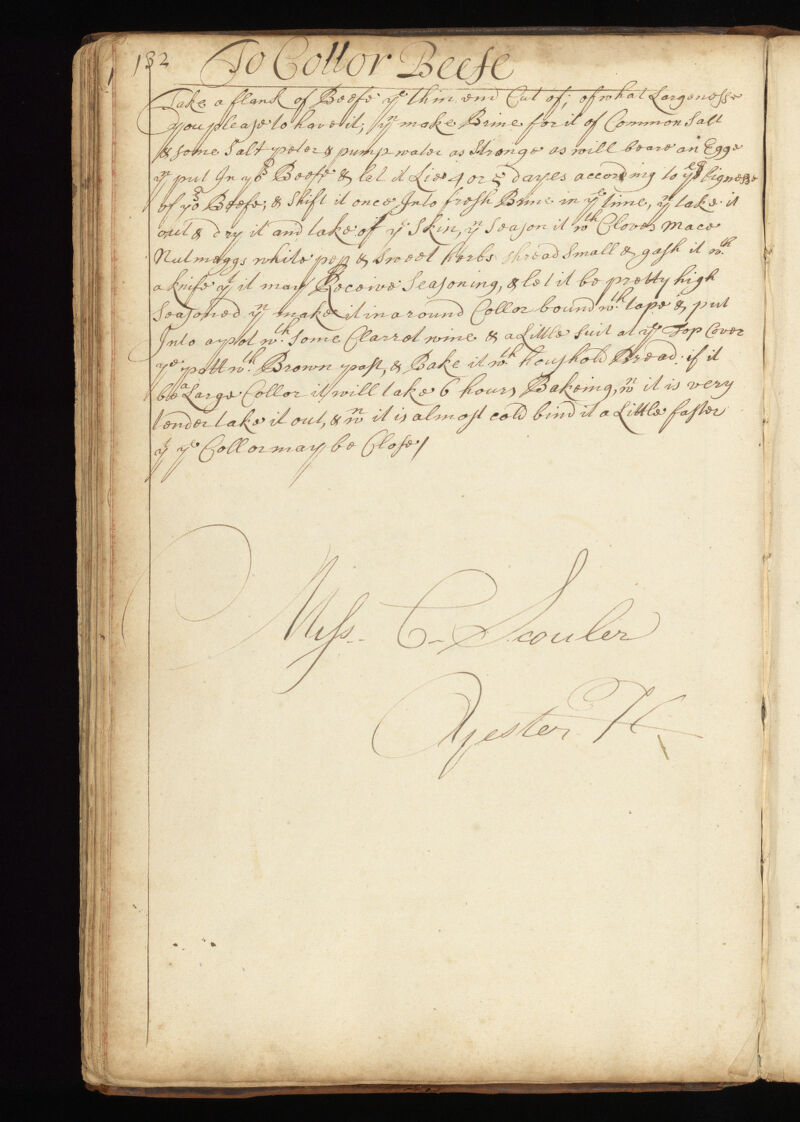 132 To Collor Beefe
Take a flank of Beefe ye thin end Cut of; of what Largenesse
you please to have it; yn make Brine for it of Common Salt
& some Salt peter & pump water as Stronge as will beare an Egge
yn put In ye Beefe & let it Lie 4 or 5 dayes according to ye bignesse
of ye Beefe; & Shift it once Into fresh Brine in ye time, yn take it
out & dry it and take of ye Skin, yn Season it wth Cloves Mace
Nutmeggs white pep & Sweet herbs Shread Small & gash it wth
a knife yt it may Receive Seasoning, & let it be pretty high
Seasoned yn make it in a round Collor bound wth tape & put
Into a pot wth Some Clarret wine & a Little Suit at ye Top Cover
ye pott wth Brown past, & Bake it wth houshold Bread. if it
be a Large Collor it will take 6 hours Bakeing, wn it is very
tender take it out, & wn it is almost cold bind it a Little faster
yt ye Collor may be Close/
Miss. C- Scouler
Oyester H